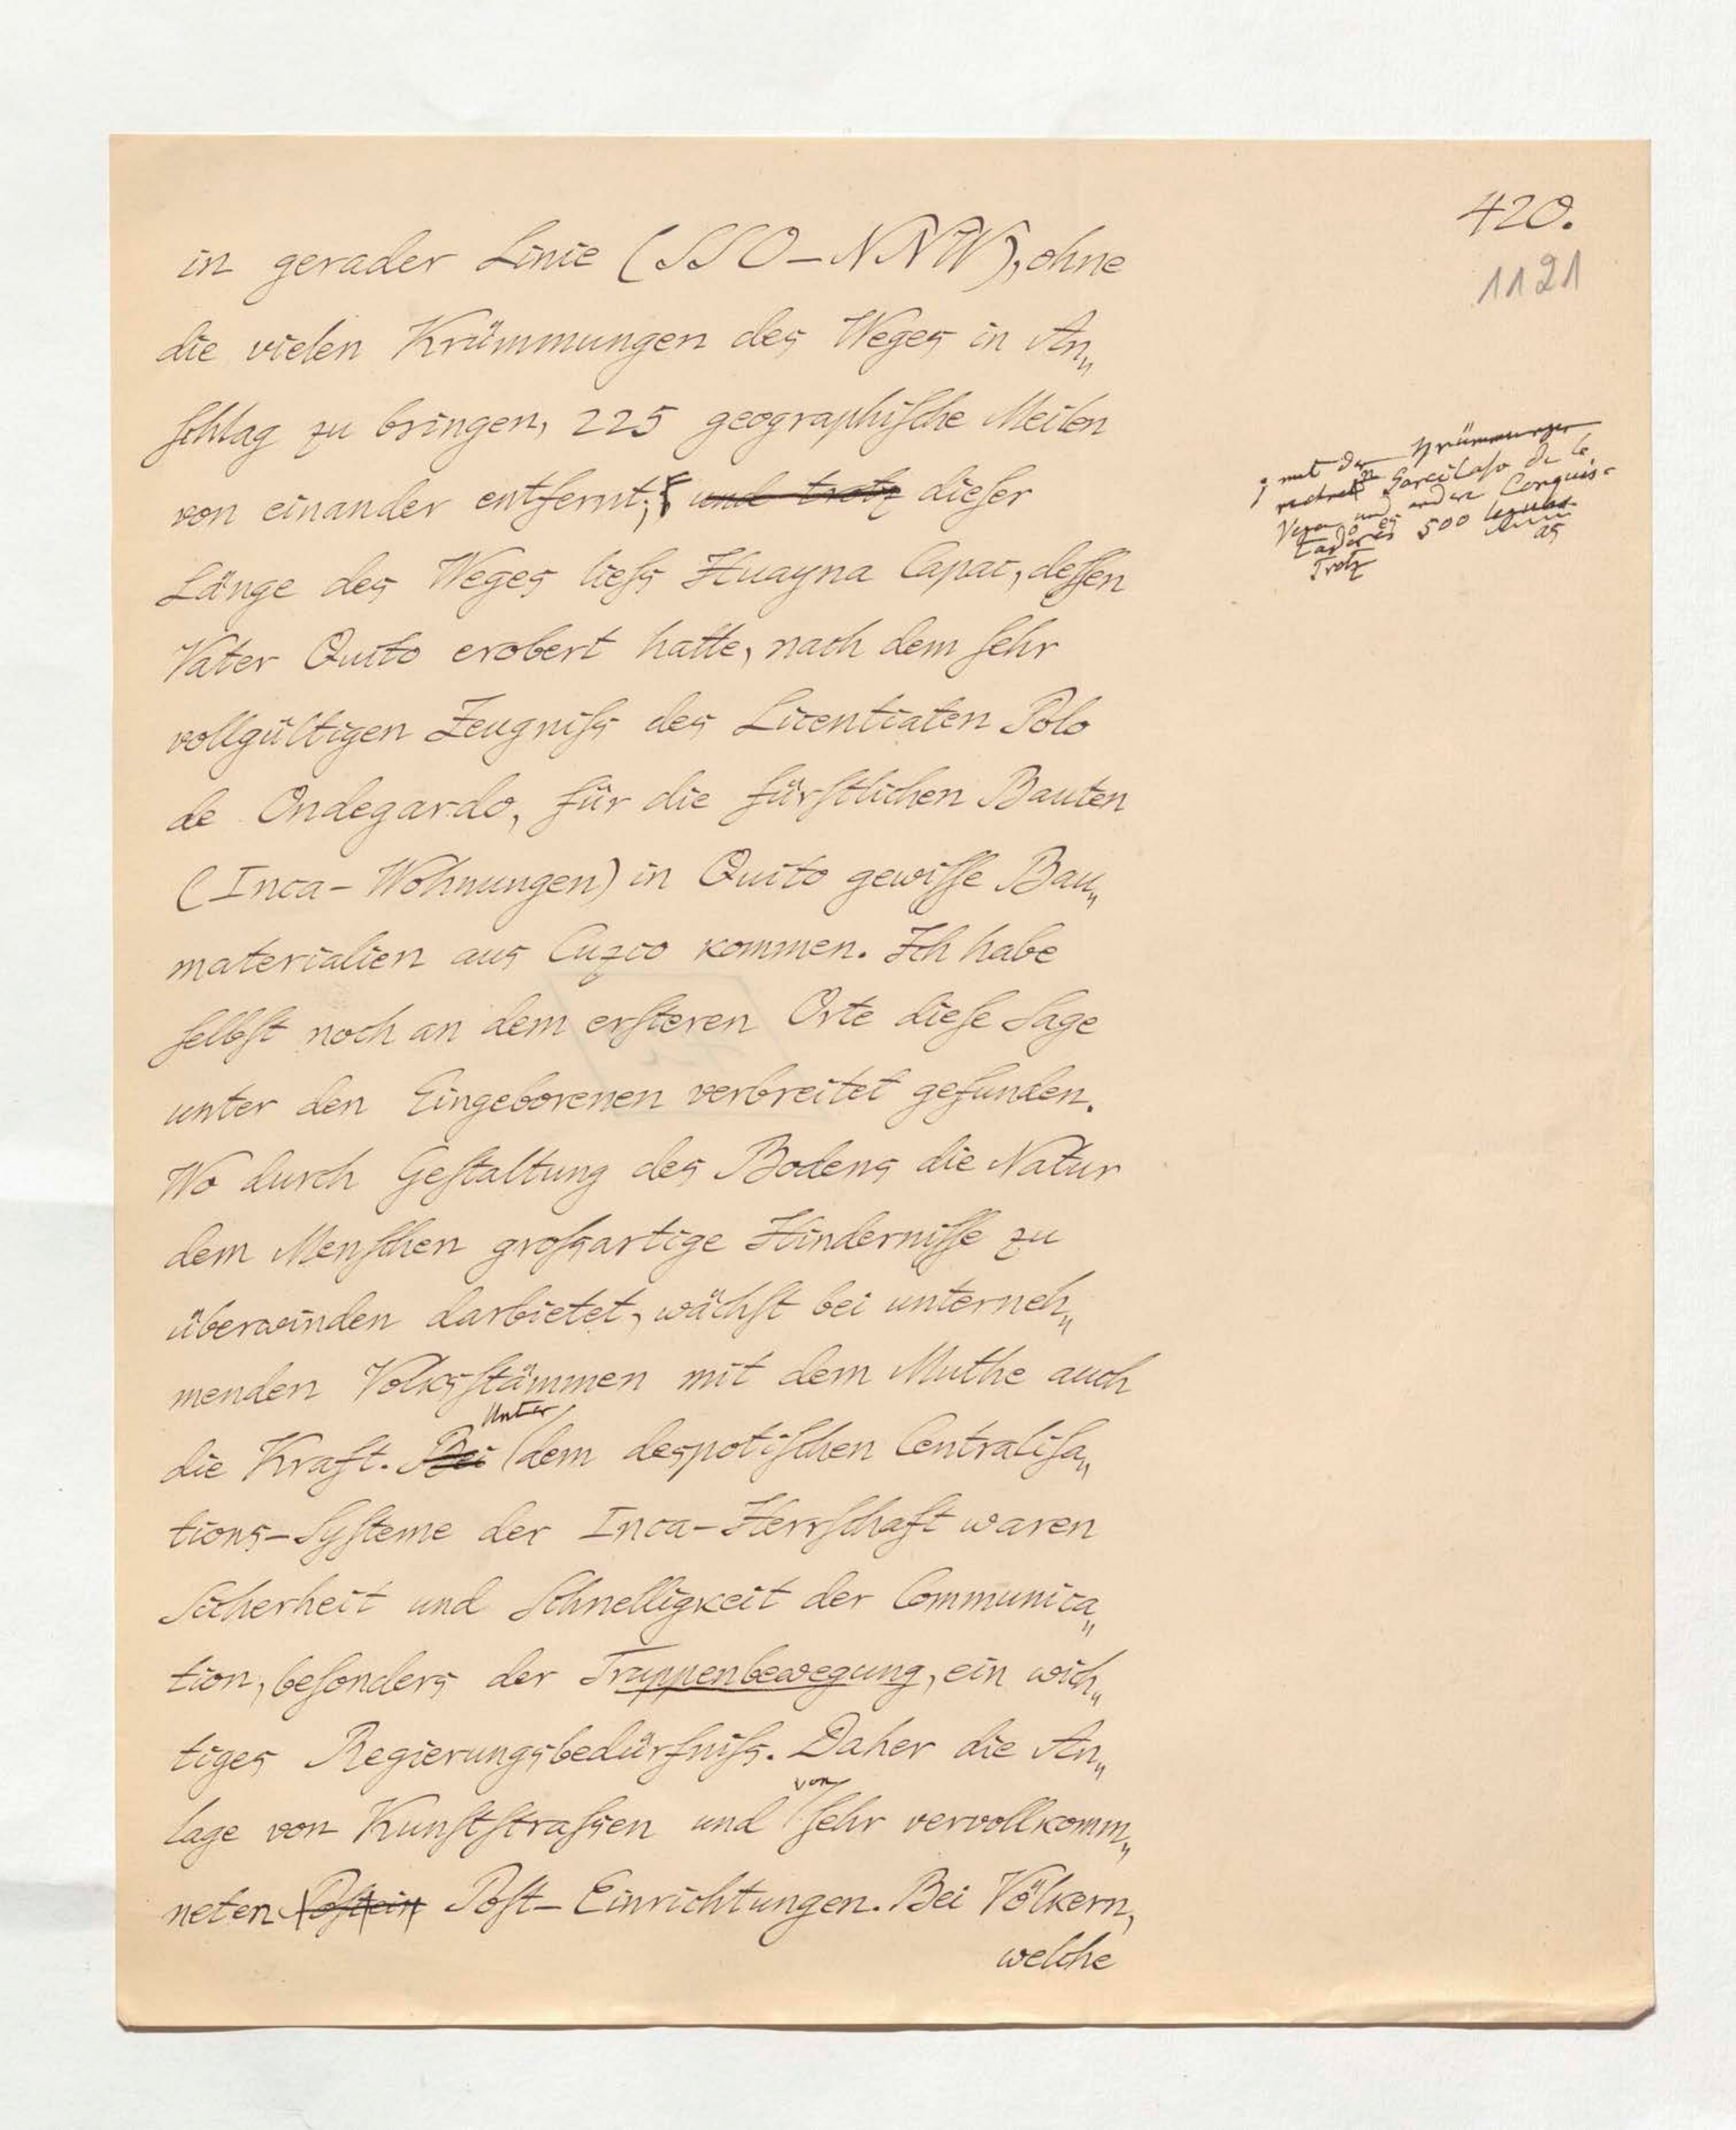 420.
1121
in gerader Linie (SSO-NNW), ohne
die vielen Krümmungen des Weges in An„
schlag zu bringen, 225 geographische Meilen
von einander entfernt; und trotz dieser
Länge des Weges liess Huayna Capac, dessen
Vater Quito erobert hatte, nach dem sehr
vollgültigen Zeugniss des Licentiaten Polo
de Ondegardo, für die fürstlichen Bauten
(Inca-Wohnungen) in Quito gewisse Bau„
materialien aus Cuzco kommen. Ich habe
selbst noch an dem ersteren Orte diese Sage
unter den Eingeborenen verbreitet gefunden.
Wo durch Gestaltung des Bodens die Natur
dem Menschen grossartige Hindernisse zu
überwinden darbietet, wächst bei unterneh„
menden Volksstämmen mit dem Muthe auch
Unter
die Kraft. Bei dem despotischen Centralisa„
tions-Systeme der Inca-Herrschaft waren
Sicherheit und Schnelligkeit der Communica„
tion, besonders der Truppenbewegung, ein wich„
tiges Regierungsbedürfniss. Daher die An„
von
lage von Kunststrassen und sehr vervollkomm„
neten Post-Einrichtungen. Bei Völkern,
welche
; mit den Krümmungen
Garcilaso de la
Vega und andere Conquis-
tadores 500
Trotz